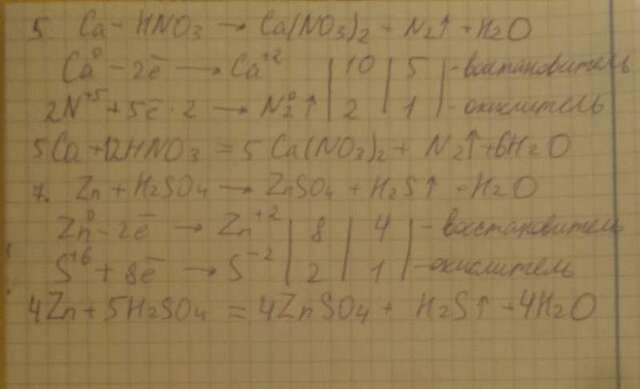 5. Ca + HNO3 → Ca(NO3)2 + N2↑ + H2O
Ca⁰ - 2ē → Ca⁺² | 10 | 5 | - востановитель
2N⁺⁵ + 5ē · 2 → N2⁰↑ | 2 | 1 | - окислитель
5Ca + 12HNO3 = 5Ca(NO3)2 + N2↑ + 6H2O
7. Zn + H2SO4 → ZnSO4 + H2S↑ + H2O
Zn⁰ - 2ē → Zn⁺² | 8 | 4 | - востановитель
S⁺⁶ + 8ē → S⁻² | 2 | 1 | - окислитель
4Zn + 5H2SO4 = 4ZnSO4 + H2S↑ + 4H2O